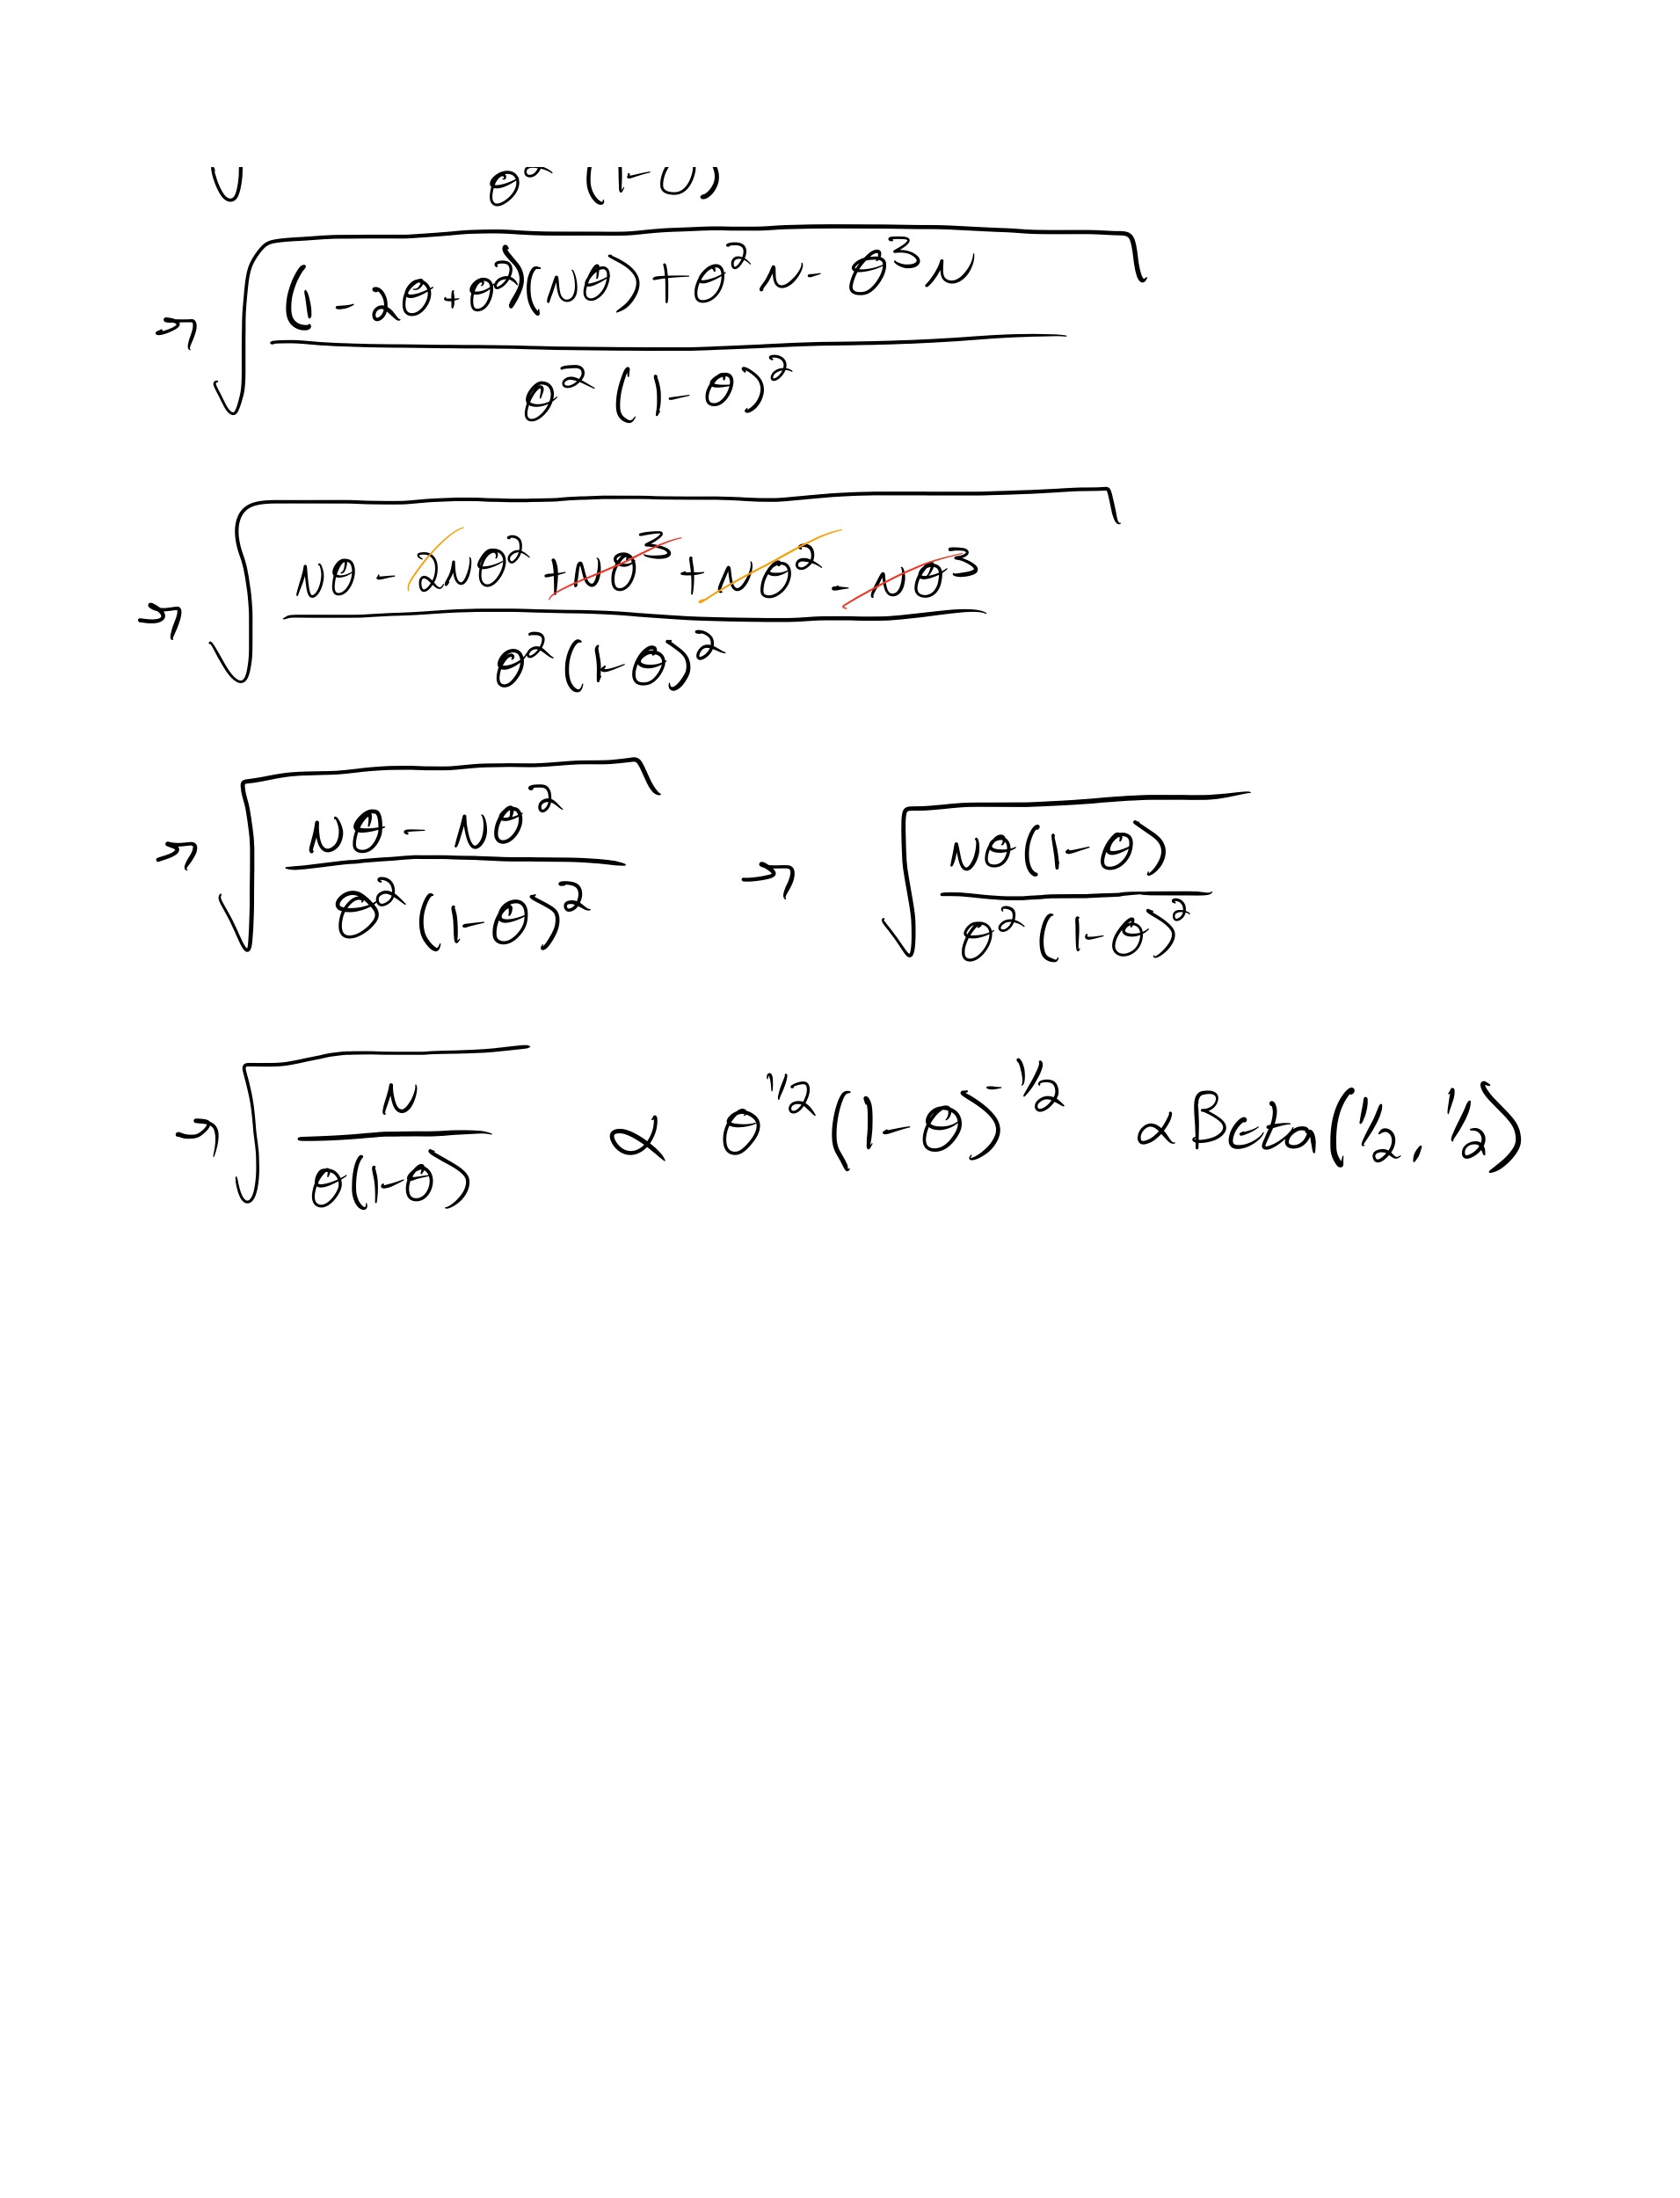 √ θ² (1-θ)
→ √((1 - 2θ + θ²)(Nθ) + θ²N - θ³N / θ² (1-θ)²)
→ √(Nθ - 2Nθ² + Nθ³ + Nθ² - Nθ³ / θ² (1-θ)²)
→ √(Nθ - Nθ² / θ² (1-θ)²) → √(Nθ(1-θ) / θ² (1-θ)²)
→ √(N / θ(1-θ)) ∝ θ^1/2 (1-θ)^-1/2 ∝ Beta(1/2, 1/2)